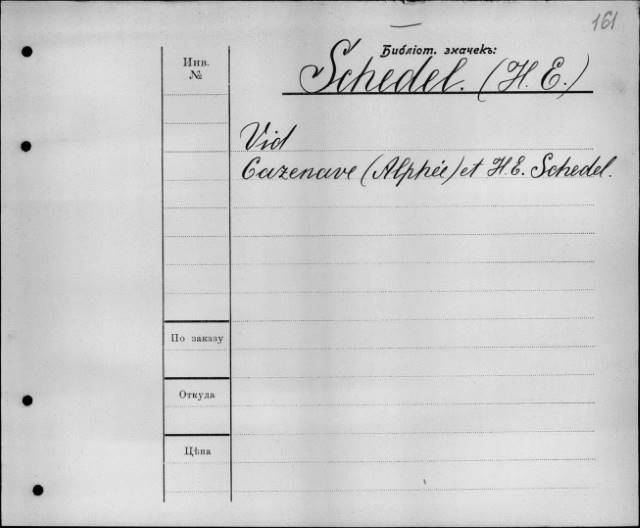 161
Библіот. значекъ:
Schedel. (H. E.)
Инв.
№
Vid
Cazenave (Alphée) et H. E. Schedel.
По заказу
Откуда
Цѣна